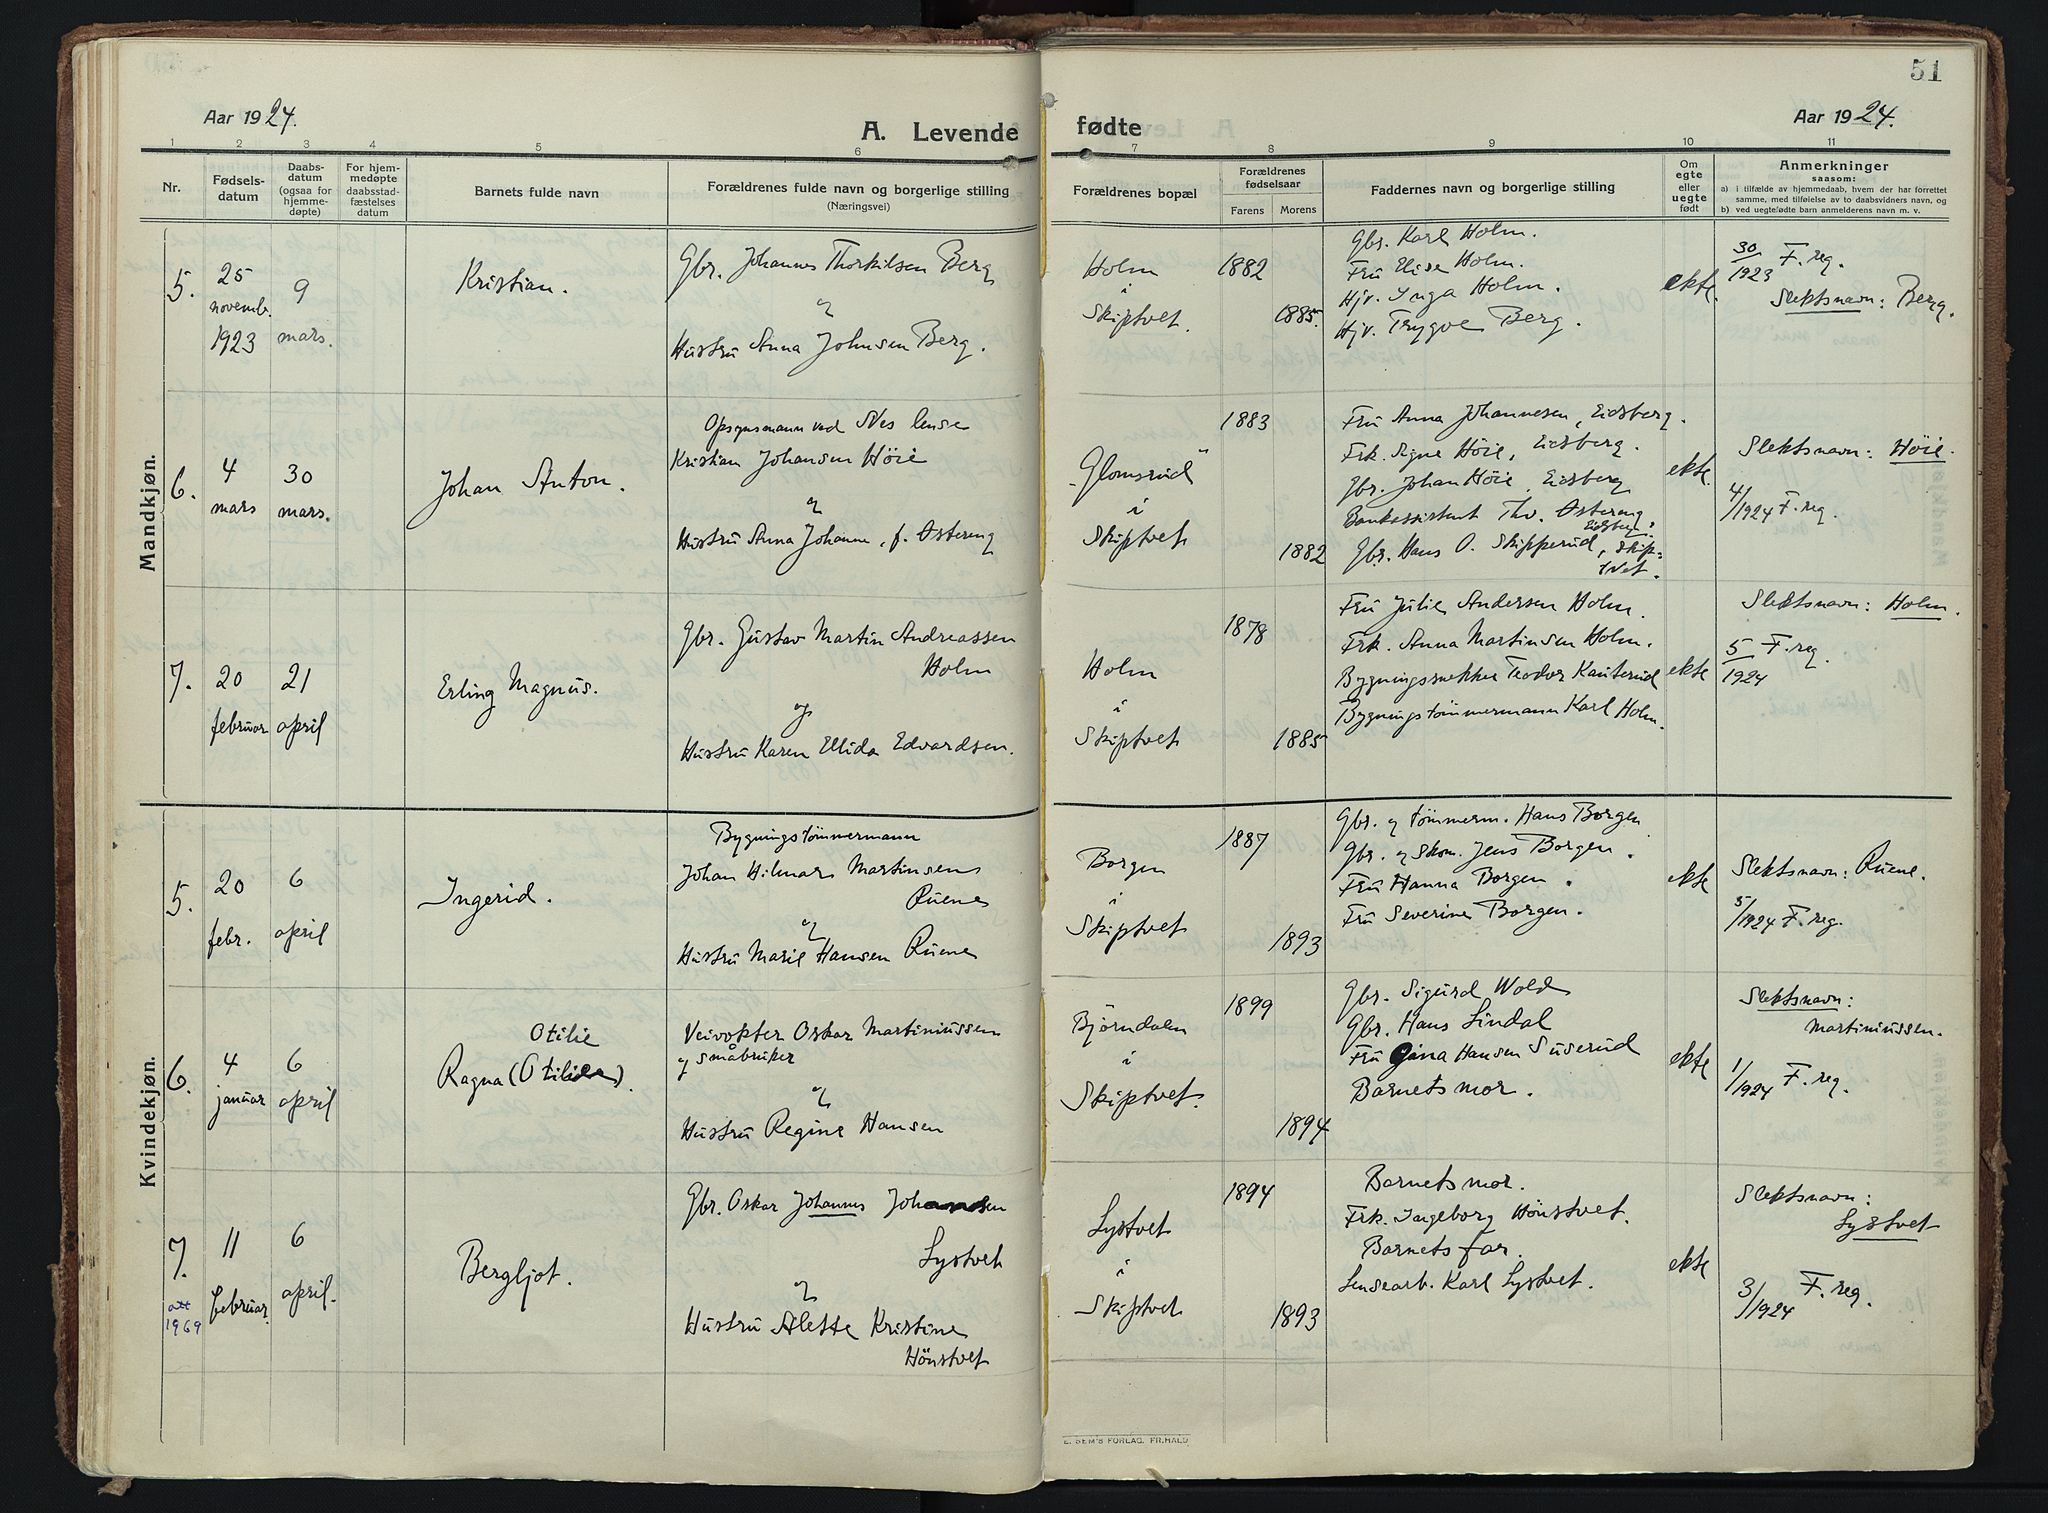 51
Aar 1924.
A. Levende fødte
Aar 1924.
1 2 3 4 5 6 7 8 9 10 11
Nr.
Fødsels-
datum
Daabs-
datum
(ogsaa for
hjemme-
døpte)
For hjem-
medøpte
daabsstad-
fæstelses
datum
Barnets fulde navn
Forældrenes fulde navn og borgerlige stilling
(Næringsvei)
Forældrenes bopæl
Forældrenes
fødselsaar
Farens Morens
Faddernes navn og borgerlige stilling
Om
egte
eller
uegte
født
Anmerkninger
saasom:
a) i tilfælde av hjemmedaab, hvem der har forrettet
samme, med tilføielse av to daabsvidners navn, og
b) ved uegtefødte barn anmelderens navn m. v.
Mandkjøn.
5.
25
novemb.
1923
9
mars.
Kristian.
Gbr. Johannes Thorkilsen Berg
og
Hustru Anna Johnsen Berg.
Holm
i
Skiptvet.
1882
1885.
Gbr. Karl Holm.
Fru Elise Holm.
Hjv. Inga Holm.
Hjv. Trygve Berg.
ekte.
30/1923 F. reg.
Slektsnavn: Berg.
6.
4
mars
30
mars.
Johan Anton.
Opsynsmann ved Nes lense
Kristian Johansen Höie
og
Hustru Anna Johanne, f. Østereng
"Glomsrud"
i
Skiptvet
1883
1882
Fru Anna Johannesen, Eidsberg.
Frk. Signe Höie, Eidsberg.
Gbr. Johan Höie, Eidsberg
Bankassistent Thv. Østereng,
Eidsberg.
Gbr. Hans O. Skipperud, Skip-
tvet.
ekte.
Slektsnavn: Höie.
4/1924 F. reg.
7.
20
februar
21
april
Erling Magnus.
Gbr. Gustav Martin Andreassen
Holm
og
Hustru Karen Ellida Edvardsen.
Holm
i
Skiptvet
1878
1885
Fru Julie Andersen Holm.
Frk. Anna Martinsen Holm.
Bygningssnekker Teodor Kauterud
Bygningstömmermann Karl Holm.
ekte
Slektsnavn: Holm.
5/1924 F. reg.
Kvindekjøn.
5.
20
febr.
6
april
Ingerid.
Bygningstömmermann
Johan Hilmar Martinsen
Ruene
og
Hustru Marie Hansen Ruene
Borgen
i
Skiptvet
1887
1893
Gbr. og tömmerm. Hans Borgen
Gbr. og Skom. Jens Borgen.
Fru Hanna Borgen.
Fru Severine Borgen.
ekte
Slektsnavn: Ruene.
5/1924 F. reg.
6.
4
januar
6
april
Otilie
Ragna (Otilida).
Veivokter Oskar Martiniussen
og småbruker
og
Hustru Regine Hansen
Björndalen
i
Skiptvet.
1899
1894
Gbr. Sigurd Wold
Gbr. Hans Lindal
Fru Gina Hansen Suserud
Barnets mor.
ekte
Slektsnavn:
Martiniussen.
1/1924 F. reg.
7.
att
1969
11
februar.
6
april.
Bergljot.
Gbr. Oskar Johannes Johansen
Lystvet
og
Hustru Alette Kristine
Hönstvet
Lystvet
i
Skiptvet
1894
1893
Barnets mor.
Frk. Ingeborg Hönstvet.
Barnets far.
Lensearb. Karl Lystvet.
ekte
Slektsnavn:
Lystvet
3/1924 F. reg.
E. SEM'S FORLAG, FR.HALD